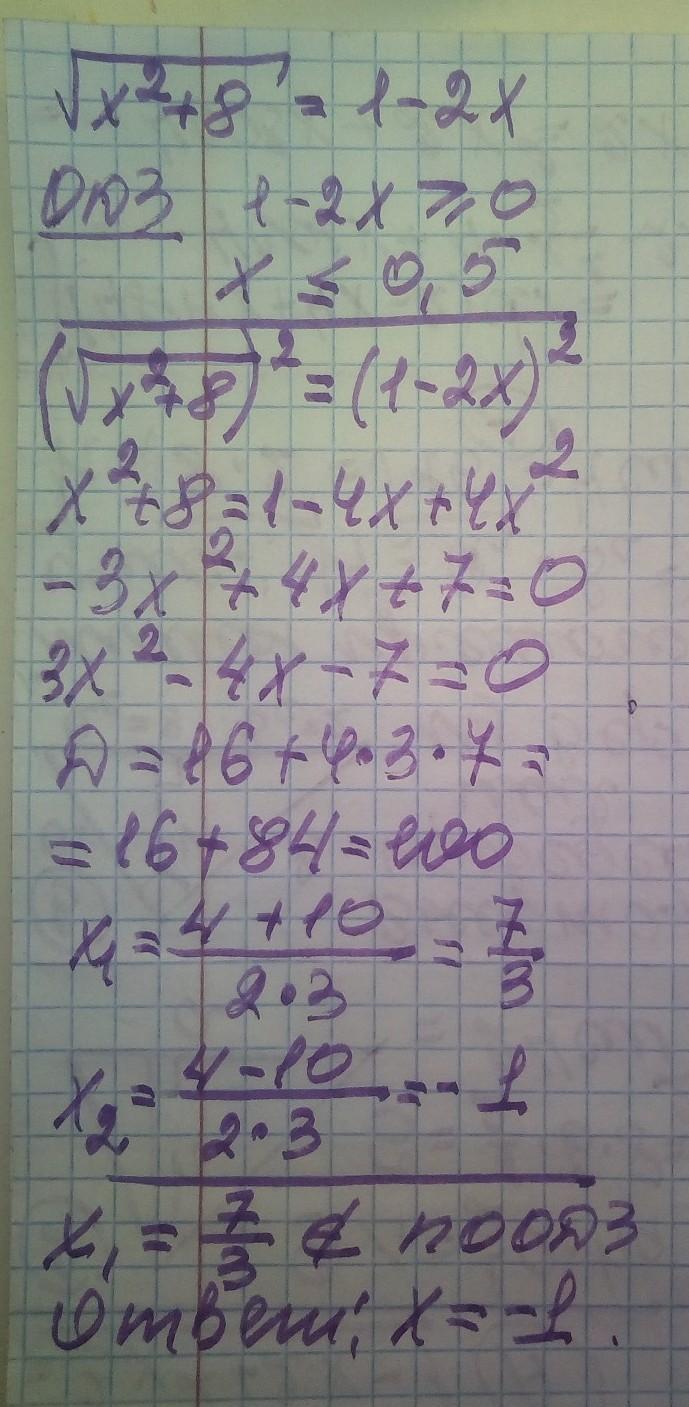 √(x²+8) = 1-2x
ОДЗ 1-2x ≥ 0
x ≤ 0,5
(√(x²+8))² = (1-2x)²
x²+8=1-4x+4x²
-3x²+4x+7=0
3x²-4x-7=0
Д = 16+4·3·7=
=16+84=100
x₁ = (4+10)/(2·3) = 7/3
x₂ = (4-10)/(2·3) = -1
x₁ = 7/3 ∉ по ОДЗ
Ответ: x=-1.